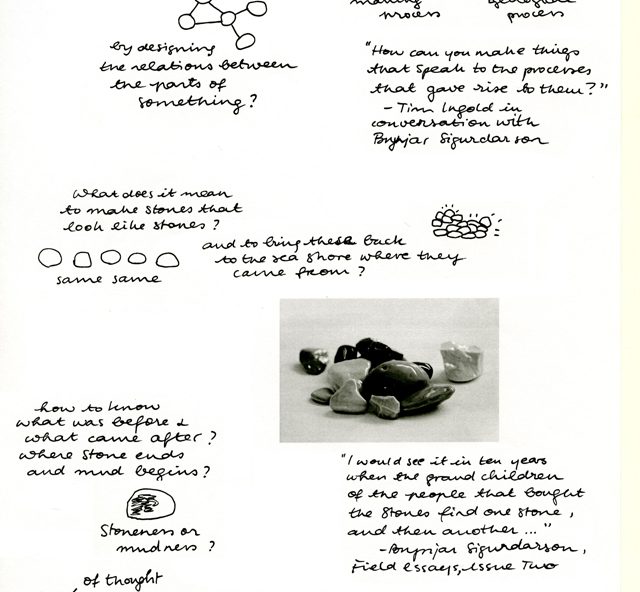 making
process
geological
process
by designing
the relations between
the parts of
something?
"How can you make things
that speak to the processes
that gave rise to them?"
- Tim Ingold in
conversation with
Brynjar Sigurdarson
What does it mean
to make stones that
look like stones?
same same
and to bring these back
to the sea shore where they
came from?
how to know
what was before &
what came after?
where stone ends
and mud begins?
Stoneness or
mudness?
"I would see it in ten years
when the grand children
of the people that bought
the stones find one stone,
and then another..."
- Brynjar Sigurdarson,
Field Essays, issue Two
of thought